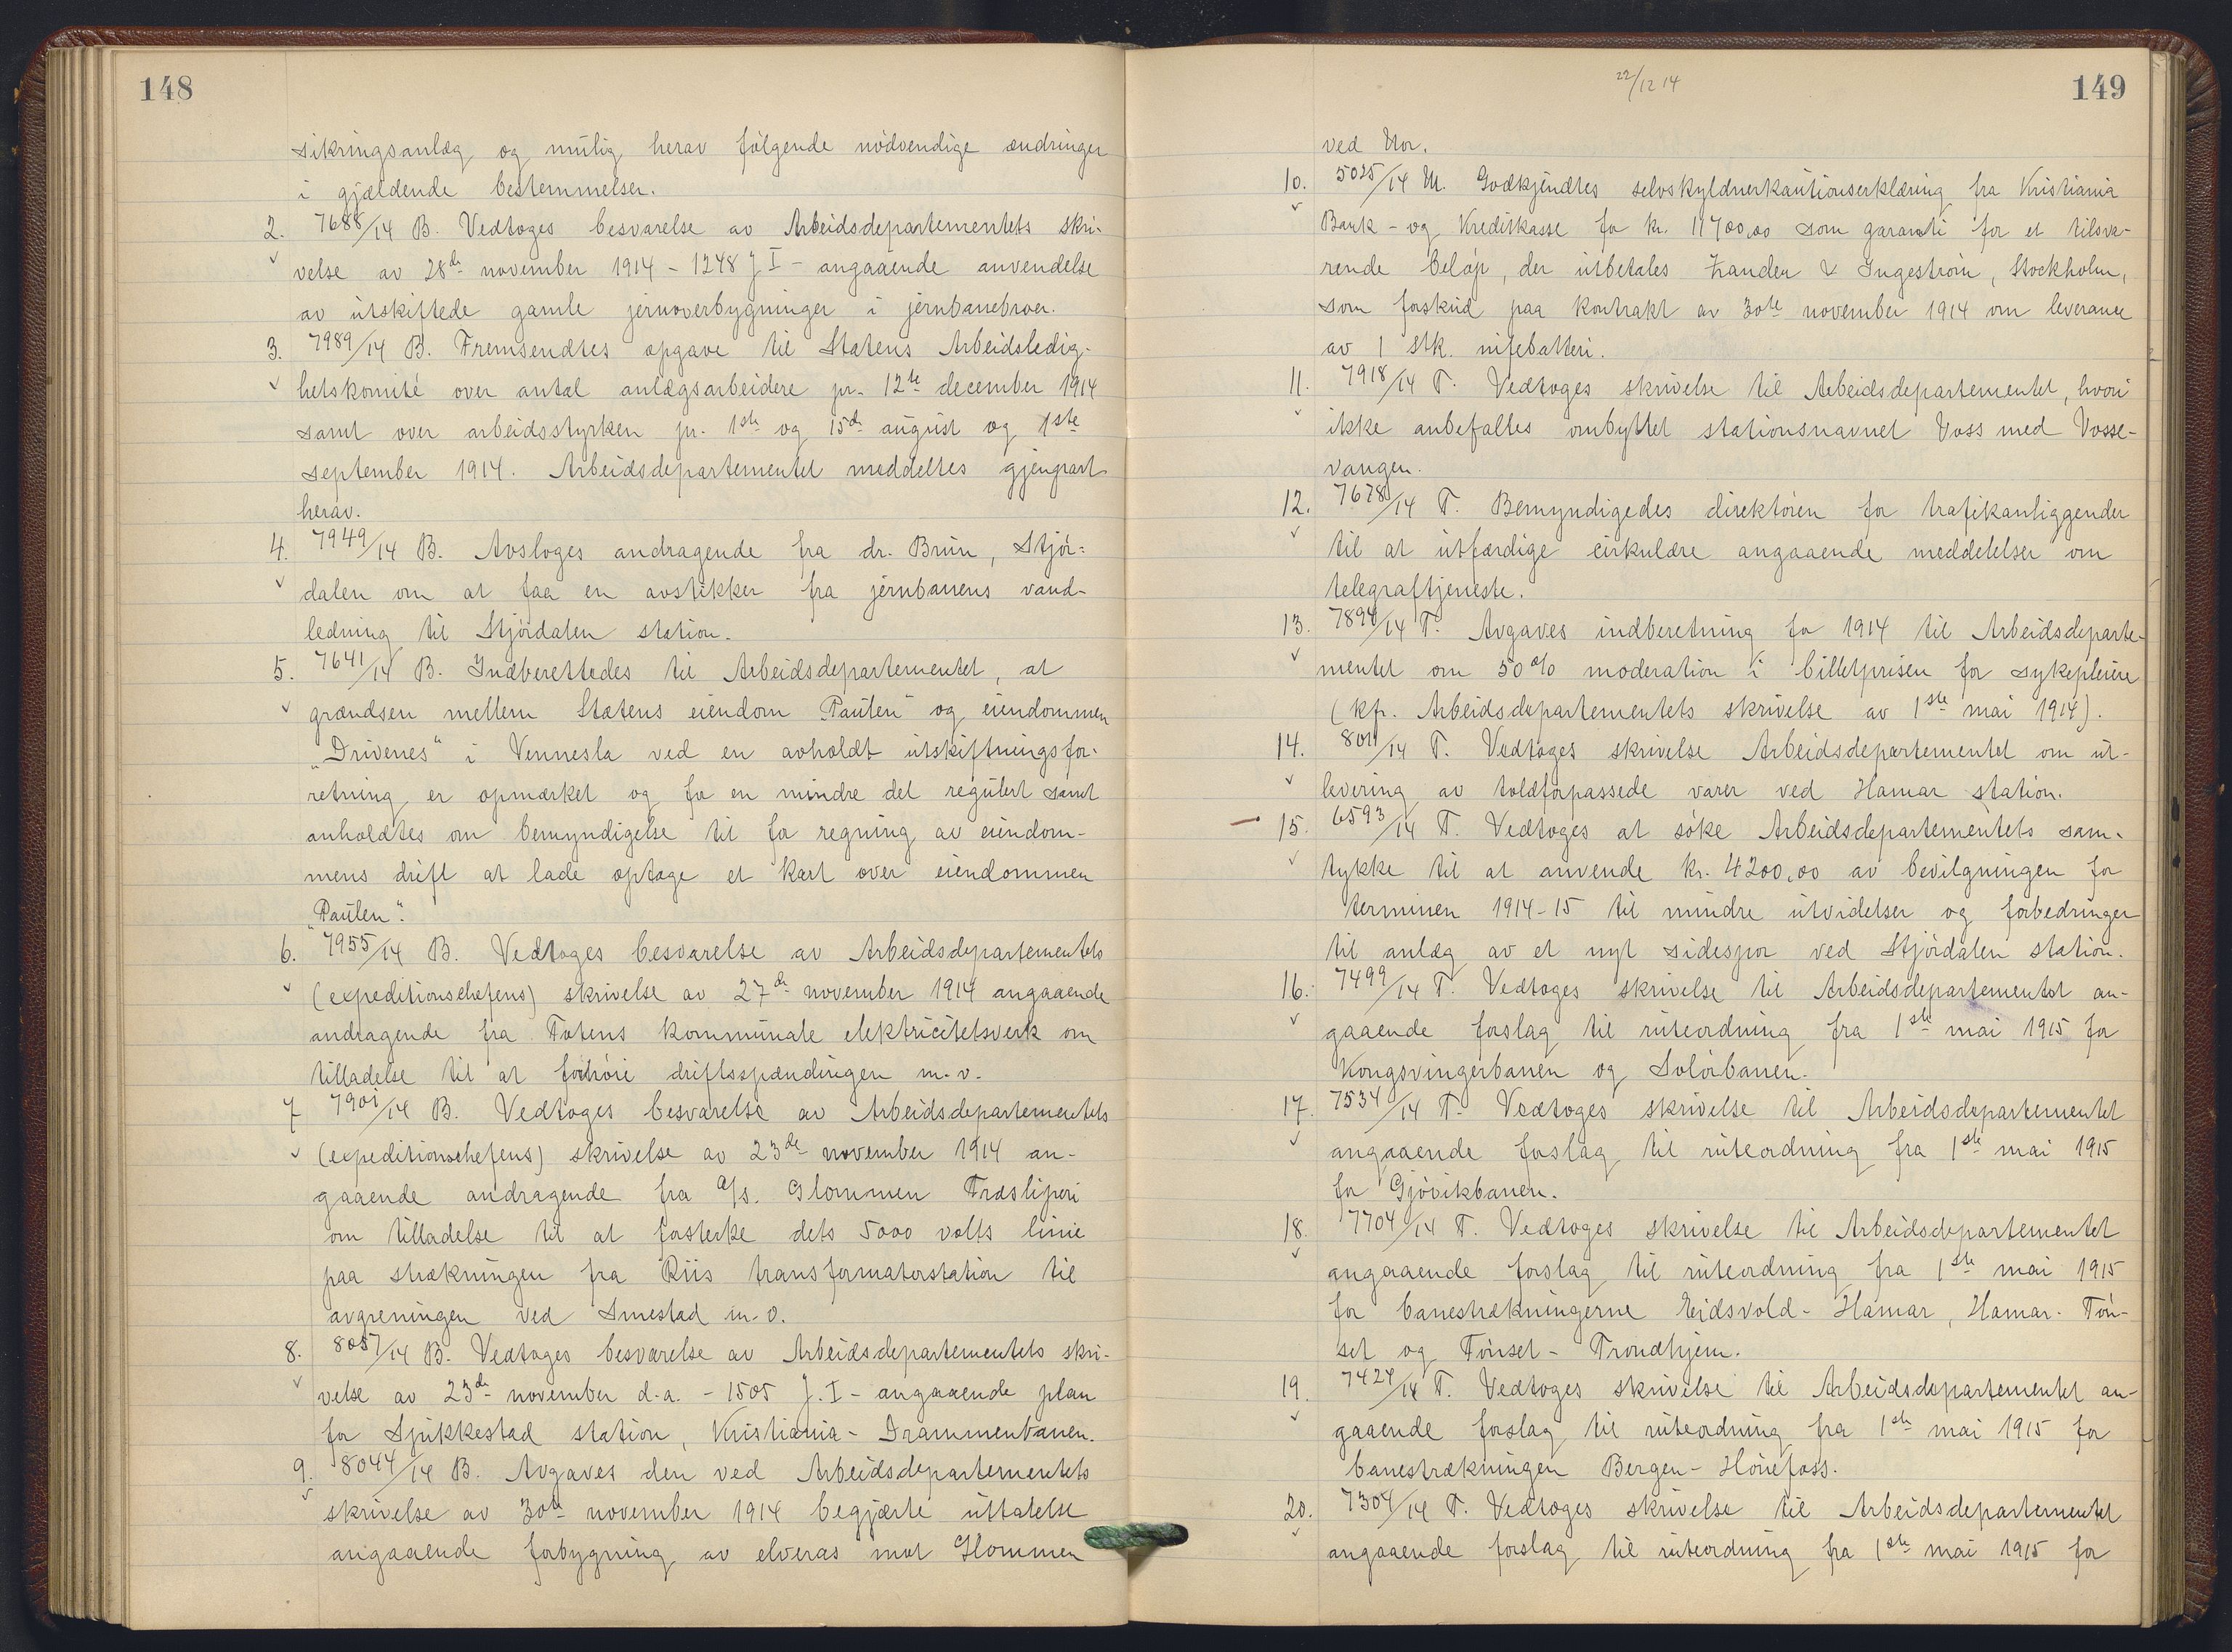 148
sikringsanlæg og mulig herav følgende nødvendige ændringer
i gjældende bestemmelser.
2. 7688/14 B. Vedtoges besvarelse av Arbeidsdepartementets skri-
velse av 28de november 1914 - 1248 J I - angaaende anvendelse
av utskiftede gamle jernoverbygninger i jernbanebroer.
3. 7989/14 B. Fremsendtes opgave til Statens Arbeidsledig-
hetskomité over antal anlægsarbeidere pr. 12te december 1914
samt over arbeidsstyrken pr. 1ste og 15de august og 1ste
september 1914. Arbeidsdepartementet meddeltes gjenpart
herav.
4. 7949/14 B. Avsloges andragende fra dr. Bruun, Stjør-
dalen om at faa en avstikker fra jernbanens vand-
ledning til Stjørdalen station.
5. 7641/14 B. Indberettedes til Arbeidsdepartementet, at
grændsen mellem Statens eiendom "Paulen" og eiendommen
"Drivenes" i Vennesla ved en avholdt utskiftningsfor-
retning er opmerket og for en mindre del regulert samt
anholdtes om bemyndigelse til for regning av eiendom-
mens drift at lade optage et kart over eiendommen
"Paulen".
6. 7955/14 B. Vedtoges besvarelse av Arbeidsdepartementets
(expeditionschefens) skrivelse av 27de november 1914 angaaende
andragende fra Totens kommunale elektricitetsverk om
tilladelse til at forhøie driftsspændingen m.v.
7 7901/14 B. Vedtoges besvarelse av Arbeidsdepartementets
(expeditionschefens) skrivelse av 23de november 1914 an-
gaaende andragende fra a/s. Glommen Træsliperi
om tilladelse til at forsterke dets 5000 volts linie
paa strækningen fra Riis transformatorstation til
avgreningen ved Smestad m.v.
8. 8057/14 B. Vedtoges besvarelse av Arbeidsdepartementets skri-
velse av 23de november d.a. - 1505 J. I - angaaende plan
for Spikkestad station, Kristiania - Drammenbanen.
9. 8044/14 B. Avgaves den ved Arbeidsdepartementets
skrivelse av 30te november 1914 begjærte uttalelse
angaaende forbygning av elveras mot Glommen
22/12 14
149
ved Mor.
10. 5025/14 M. Godkjendtes selvskyldnerkautionserklæring fra Kristiania
Bank - og Kreditkasse for kr. 11700,00 som garanti for et tilsva-
rende beløp, der utbetales Zander & Ingestrøm, Stockholm,
som forskud paa kontrakt av 30te november 1914 om leveranse
av 1 stk. nifebatteri.
11. 7918/14 T. Vedtoges skrivelse til Arbeidsdepartementet, hvori
ikke anbefaltes ombyttet stationsnavnet Voss med Vosse-
vangen.
12. 7678/14 T. Bemyndigedes direktøren for trafikanliggender
til at utfærdige cirkulære angaaende meddelelser om
telegraftjeneste.
13. 7894/14 T. Avgaves indberetning for 1914 til Arbeidsdeparte-
mentet om 50% moderation i billetprisen for sykepleiere
(kfr. Arbeidsdepartementets skrivelse av 1ste mai 1914).
14. 8011/14 T. Vedtoges skrivelse Arbeidsdepartementet om ut-
levering av toldforpassede varer ved Hamar station.
15. 6593/14 T. Vedtoges at søke Arbeidsdepartementets sam-
tykke til at anvende kr. 4200,00 av bevilgningen for
terminen 1914-15 til mindre utvidelser og forbedringer
til anlæg av et nyt sidespor ved Stjørdalen station.
16. 7499/14 T. Vedtoges skrivelse til Arbeidsdepartementet an-
gaaende forslag til ruteordning fra 1ste mai 1915 for
Kongsvingerbanen og Solørbanen.
17. 7534/14 T. Vedtoges skrivelse til Arbeidsdepartementet
angaaende forslag til ruteordning fra 1ste mai 1915
for Gjøvikbanen.
18. 7704/14 T. Vedtoges skrivelse til Arbeidsdepartementet
angaaende forslag til ruteordning fra 1ste mai 1915
for banestrækningerne Eidsvold - Hamar, Hamar - Tøn-
set og Tønset - Trondhjem.
19. 7424/14 T. Vedtoges skrivelse til Arbeidsdepartementet an-
gaaende forslag til ruteordning fra 1ste mai 1915 for
banestrækningen Bergen - Hønefoss.
20. 7304/14 T. Vedtoges skrivelse til Arbeidsdepartementet
angaaende forslag til ruteordning fra 1ste mai 1915 for